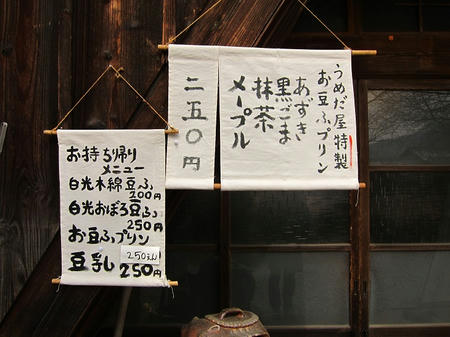 うめだ屋特製
お豆ふプリン
あずき
黒ごま
抹茶
メープル
二五〇円
お持ち帰り
メニュー
白光木綿豆ふ
200円
白光おぼろ豆ふ
250円
お豆ふプリン
250えん
豆乳 250円